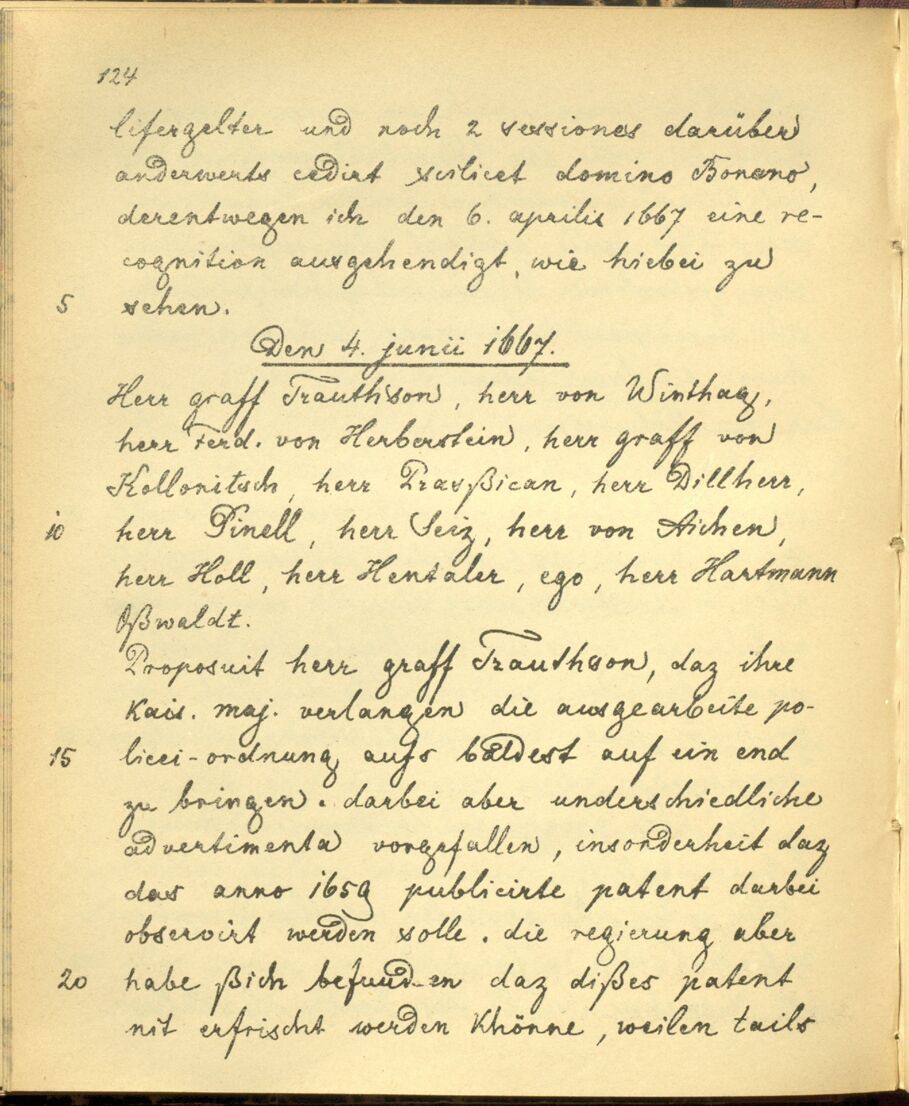 124
lifergelter und noch 2 sessiones darüber
anderwerts cedirt scilicet domino Bonano,
derentwegen ich den 6. aprilis 1667 eine re-
cognition ausgehendigt, wie hiebei zu
5 sehen.
Den 4. junii 1667.
Herr graff Trauthson, herr von Winthag,
herr Ferd. von Herberstein, herr graff von
Kollonitsch, herr Prasßican, herr Dillherr,
10 herr Pinell, herr Seiz, herr von Aichen,
herr Holl, herr Hentaler, ego, herr Hartmann
Oßwaldt.
Proposuit herr graff Trauthson, daz ihre
Kais. maj. verlangen die ausgearbeite po-
15 licei-ordnung aufs bäldest auf ein end
zu bringen. darbei aber underschiedliche
advertimenta vorgefallen, insonderheit daz
das anno 1659 publicirte patent darbei
observirt werden solle. die regierung aber
20 habe ßich befunden daz dißes patent
nit erfrischt werden khönne, weilen tails